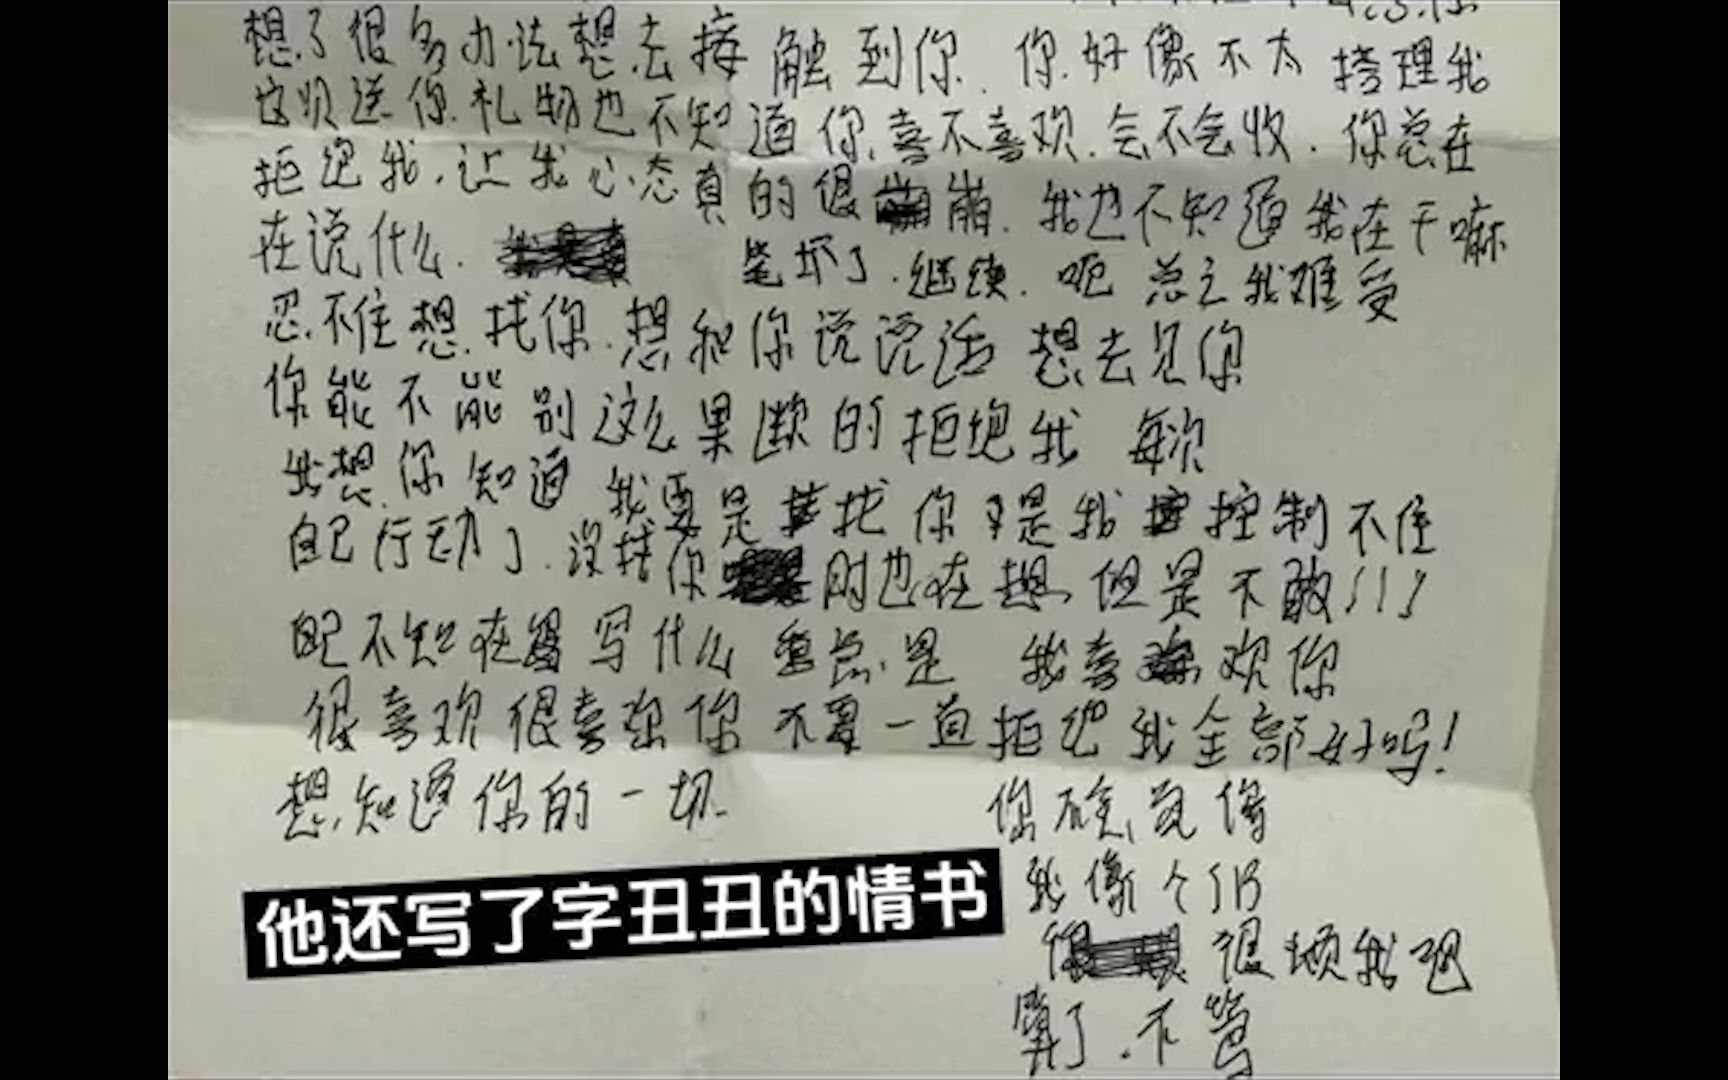 想了很多办法想去接触到你.你好像不太搭理我
这次送你礼物也不知道你喜不喜欢.会不会收.你总在
拒绝我.让我心态真的很崩.我也不知道我在干嘛
在说什么. 笔坏了.继续.呃 总之我难受
忍不住想找你.想和你说说话 想去见你
你能不能别这么果断的拒绝我 每次
我想你知道 我要是找你了是我控制不住
自己行动了.没找你时也在想 但是不敢!!!
自己不知在写什么 重点是 我喜欢你
很喜欢很喜欢你 不要一直拒绝我全部好吗!
想知道你的一切.
你 觉得
我像个
很烦我吧
算了.不管
他还写了字丑丑的情书